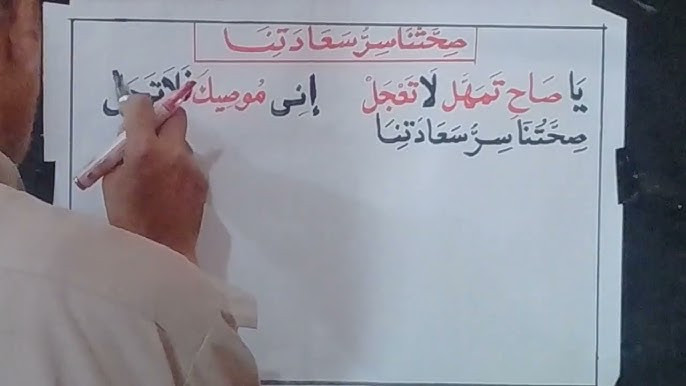 صِحَّتُنَا سِرُّ سَعَادَتِنَا
يَا صَاحِ تَمَهَّل لَا تَعْجَلْ إنِى مُوصِيكَ فَلَا
صِحَّتُنَا سِرُّ سَعَادَتِنَا